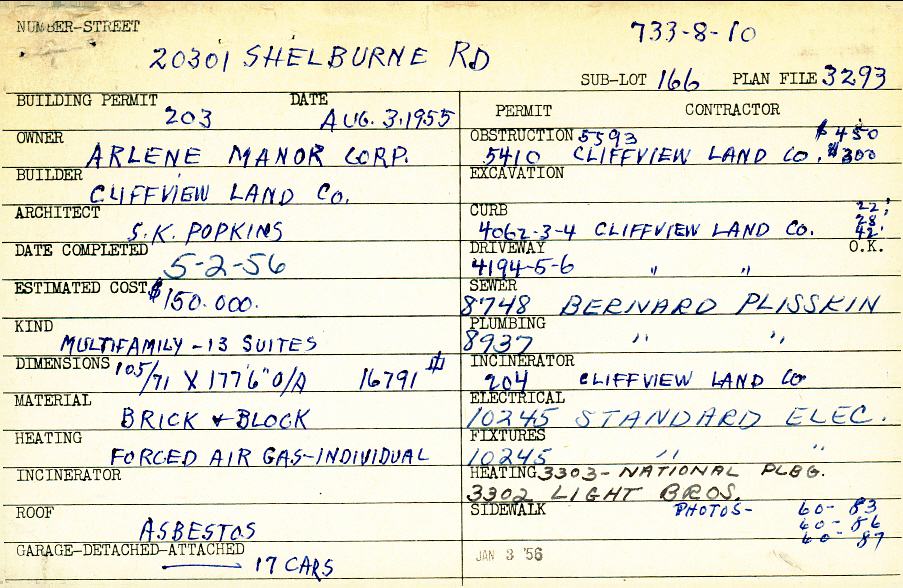 NUMBER-STREET 733-8-10
20301 SHELBURNE RD
SUB-LOT 166 PLAN FILE 3293
BUILDING PERMIT DATE
203 AUG. 3, 1955
OWNER
ARLENE MANOR CORP.
BUILDER
CLIFFVIEW LAND CO.
ARCHITECT
S.K. POPKINS
DATE COMPLETED
5-2-56
ESTIMATED COST $150.000.
KIND
MULTIFAMILY-13 SUITES
DIMENSIONS 105/71 X 177'6" O/A 16791
MATERIAL
BRICK & BLOCK
HEATING
FORCED AIR GAS-INDIVIDUAL
INCINERATOR
ROOF
ASBESTOS
GARAGE-DETACHED-ATTACHED
17 CARS
PERMIT CONTRACTOR
OBSTRUCTION 5593 $450
5410 CLIFFVIEW LAND CO. $300
EXCAVATION
CURB 22'
28'
4062-3-4 CLIFFVIEW LAND CO. 42'
DRIVEWAY O.K.
4194-5-6 " "
SEWER
8748 BERNARD PLISSKIN
PLUMBING
8937 " "
INCINERATOR
204 CLIFFVIEW LAND CO
ELECTRICAL
10245 STANDARD ELEC.
FIXTURES
10245 " "
HEATING 3303-NATIONAL PLBG.
3302 LIGHT BROS.
SIDEWALK PHOTOS- 60-83
60-86
60-87
JAN 3 '56